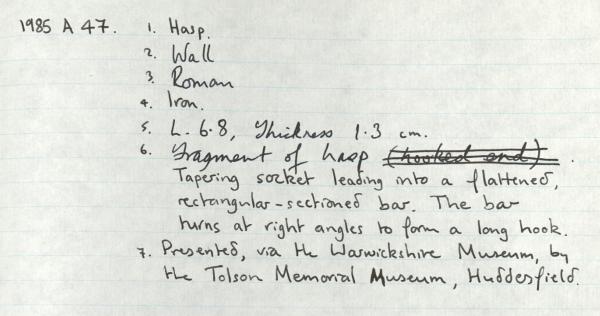 1985 A 47. 1. Hasp.
2. Wall
3. Roman
4. Iron.
5. L. 6.8, Thickness 1.3 cm.
6. Fragment of hasp (hooked end).
Tapering socket leading into a flattened,
rectangular-sectioned bar. The bar
turns at right angles to form a long hook.
7. Presented, via the Warwickshire Museum, by
the Tolson Memorial Museum, Huddersfield.